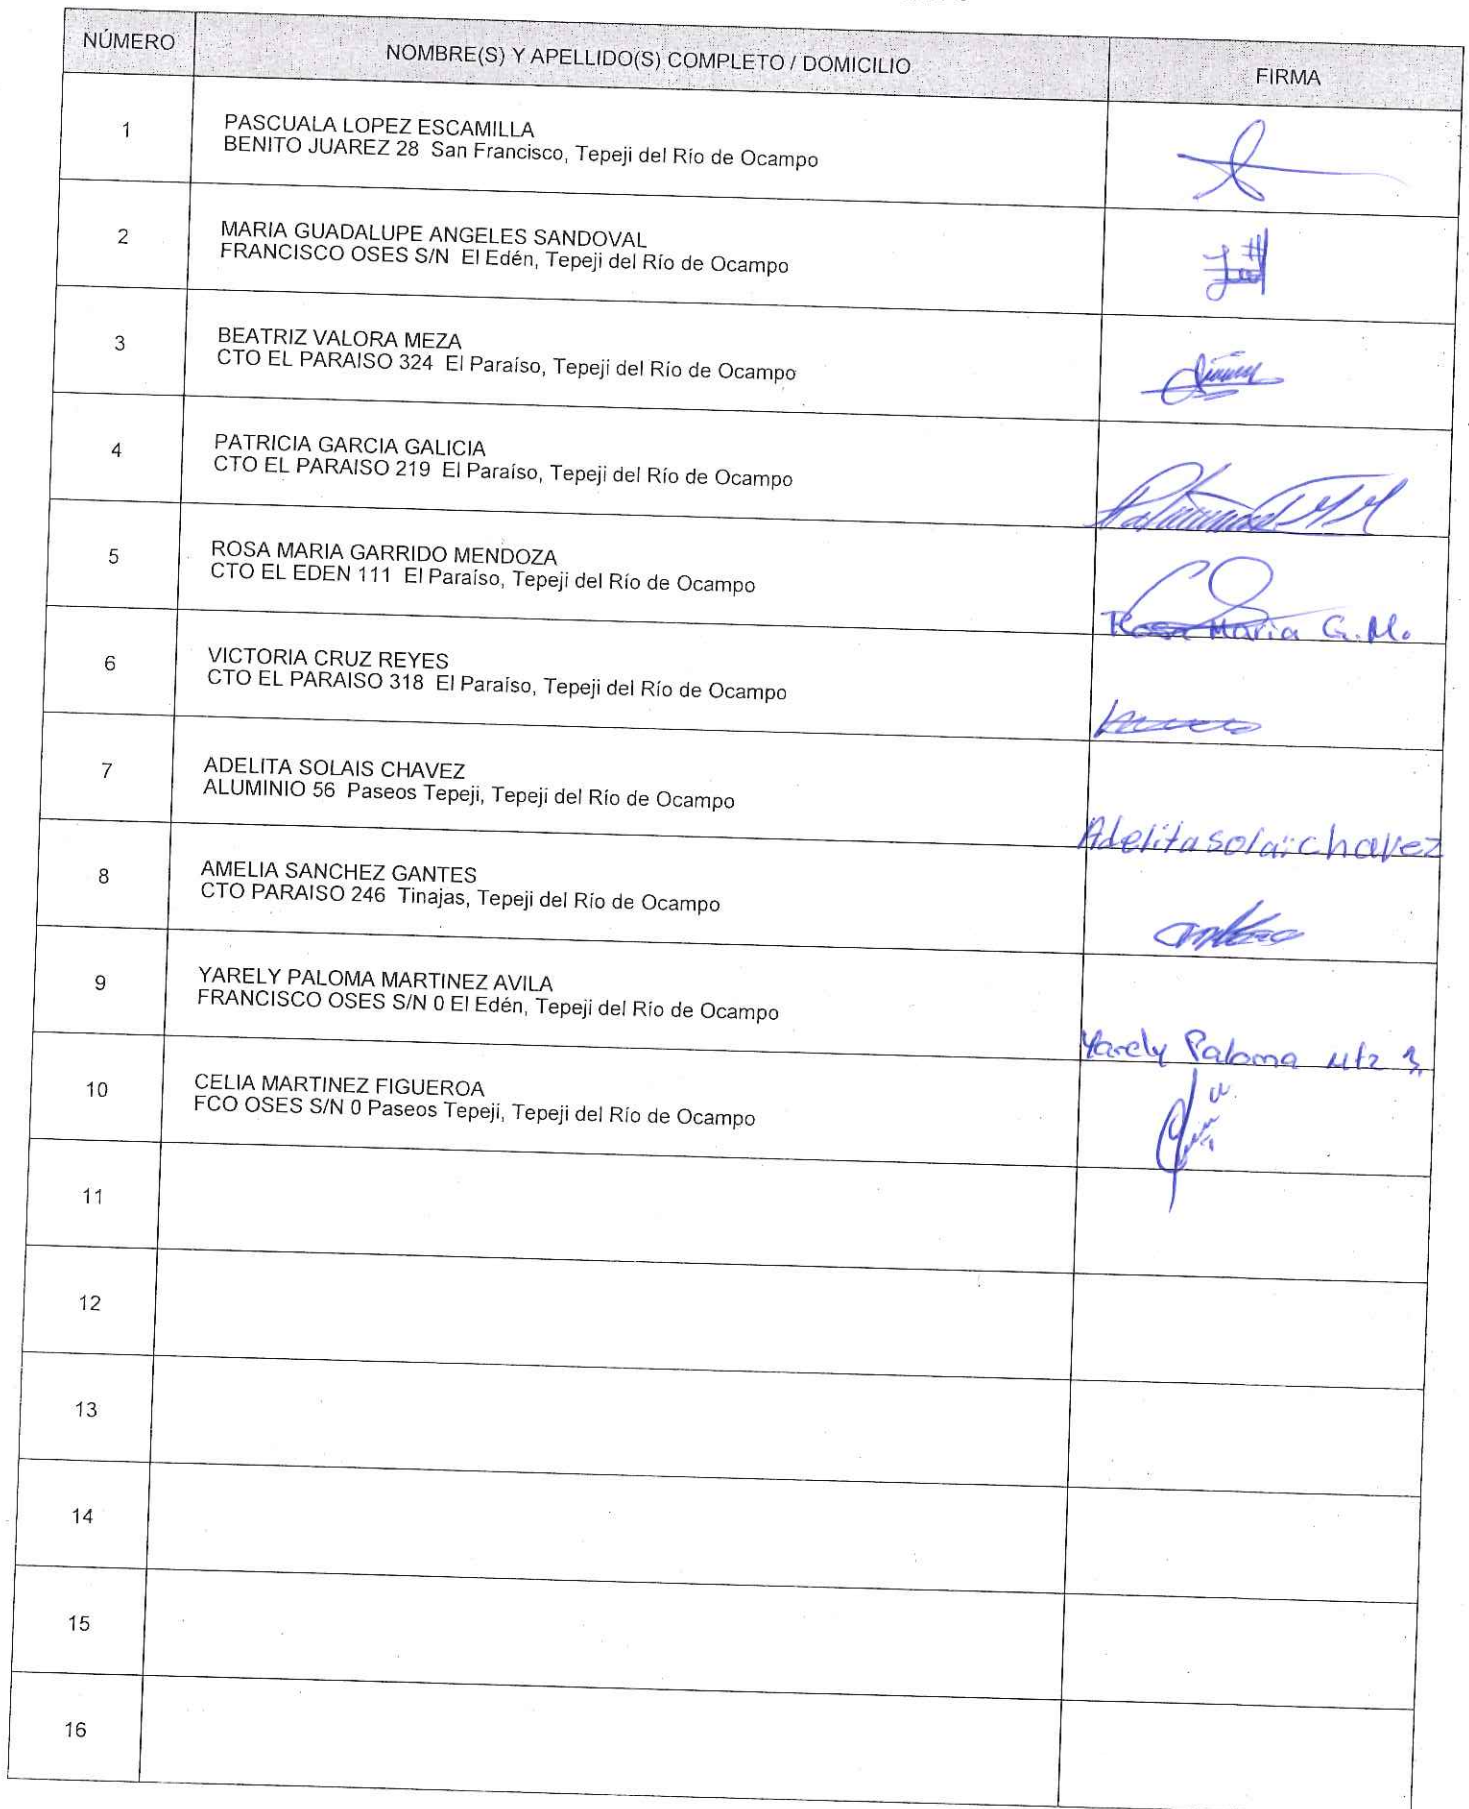 NÚMERO
NOMBRE(S) Y APELLIDO(S) COMPLETO / DOMICILIO
FIRMA
1
PASCUALA LOPEZ ESCAMILLA
BENITO JUAREZ 28 San Francisco, Tepeji del Río de Ocampo
2
MARIA GUADALUPE ANGELES SANDOVAL
FRANCISCO OSES S/N El Edén, Tepeji del Río de Ocampo
3
BEATRIZ VALORA MEZA
CTO EL PARAISO 324 El Paraíso, Tepeji del Río de Ocampo
4
PATRICIA GARCIA GALICIA
CTO EL PARAISO 219 El Paraíso, Tepeji del Río de Ocampo
5
ROSA MARIA GARRIDO MENDOZA
CTO EL EDEN 111 El Paraíso, Tepeji del Río de Ocampo
Rosa Maria G.M.
6
VICTORIA CRUZ REYES
CTO EL PARAISO 318 El Paraíso, Tepeji del Río de Ocampo
7
ADELITA SOLAIS CHAVEZ
ALUMINIO 56 Paseos Tepeji, Tepeji del Río de Ocampo
Adelita solai chavez
8
AMELIA SANCHEZ GANTES
CTO PARAISO 246 Tinajas, Tepeji del Río de Ocampo
9
YARELY PALOMA MARTINEZ AVILA
FRANCISCO OSES S/N 0 El Edén, Tepeji del Río de Ocampo
Yarely Paloma Mtz
10
CELIA MARTINEZ FIGUEROA
FCO OSES S/N 0 Paseos Tepeji, Tepeji del Río de Ocampo
11
12
13
14
15
16